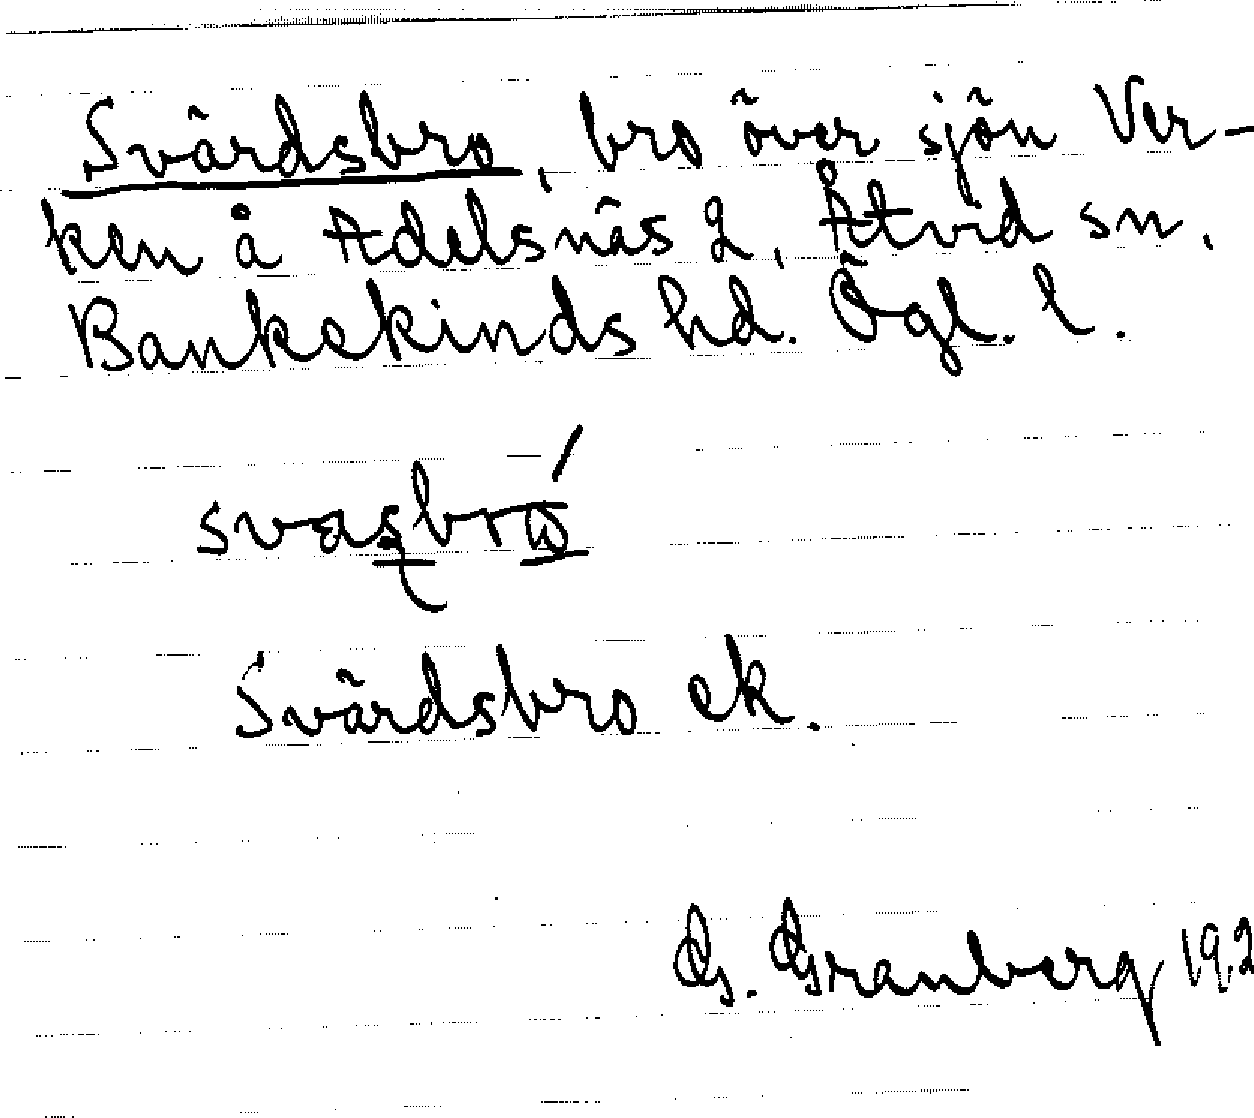 Svärdsbro, bro över sjön Ver-
ken å Adelsnäs 2, Åtvid sn.
Bankekinds hd. Ögl. l.
Svärdsbro ek.
G. Granberg 192